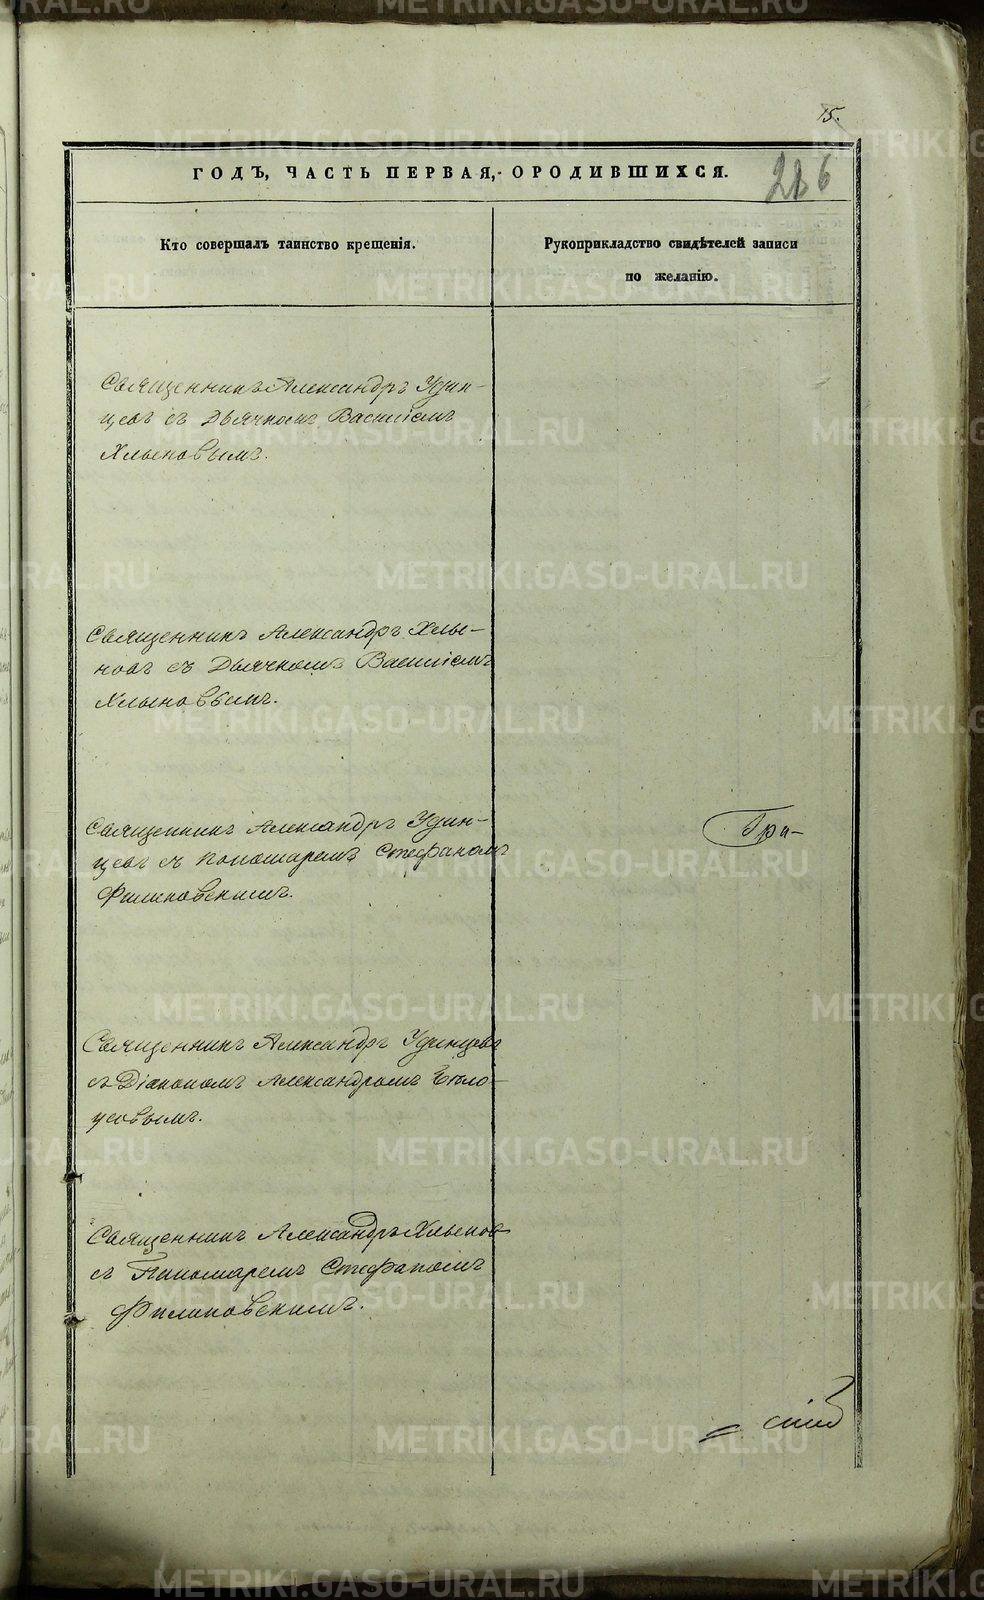 15.
ГОДЪ, ЧАСТЬ ПЕРВАЯ, О РОДИВШИХСЯ.
286
Кто совершалъ таинство крещенія.
Рукоприкладство свидѣтелей записи
по желанію.
Священникъ Александръ Удин-
цевъ съ Дьячкомъ Василіемъ
Хлыновымъ.
Священникъ Александръ Хлы-
новъ съ Дьячкомъ Василіемъ
Хлыновымъ.
Священникъ Александръ Удин-
цевъ съ пономаремъ Стефаномъ
Филиповскимъ.
Гри-
Священникъ Александръ Удинцовъ
съ Діакономъ Александромъ Бѣло-
усовымъ.
Священникъ Александръ Хлыновъ
съ Пономаремъ Стефаномъ
Филиповскимъ.
METRIKI.GASO-URAL.RU